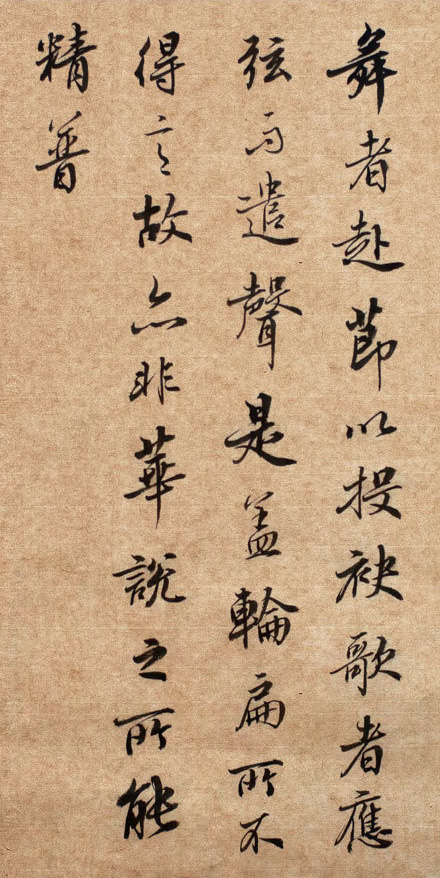 舞者赴節以投袂歌者應
弦而遣聲是蓋輪扁所不
得言故亦非華說之所能
精普